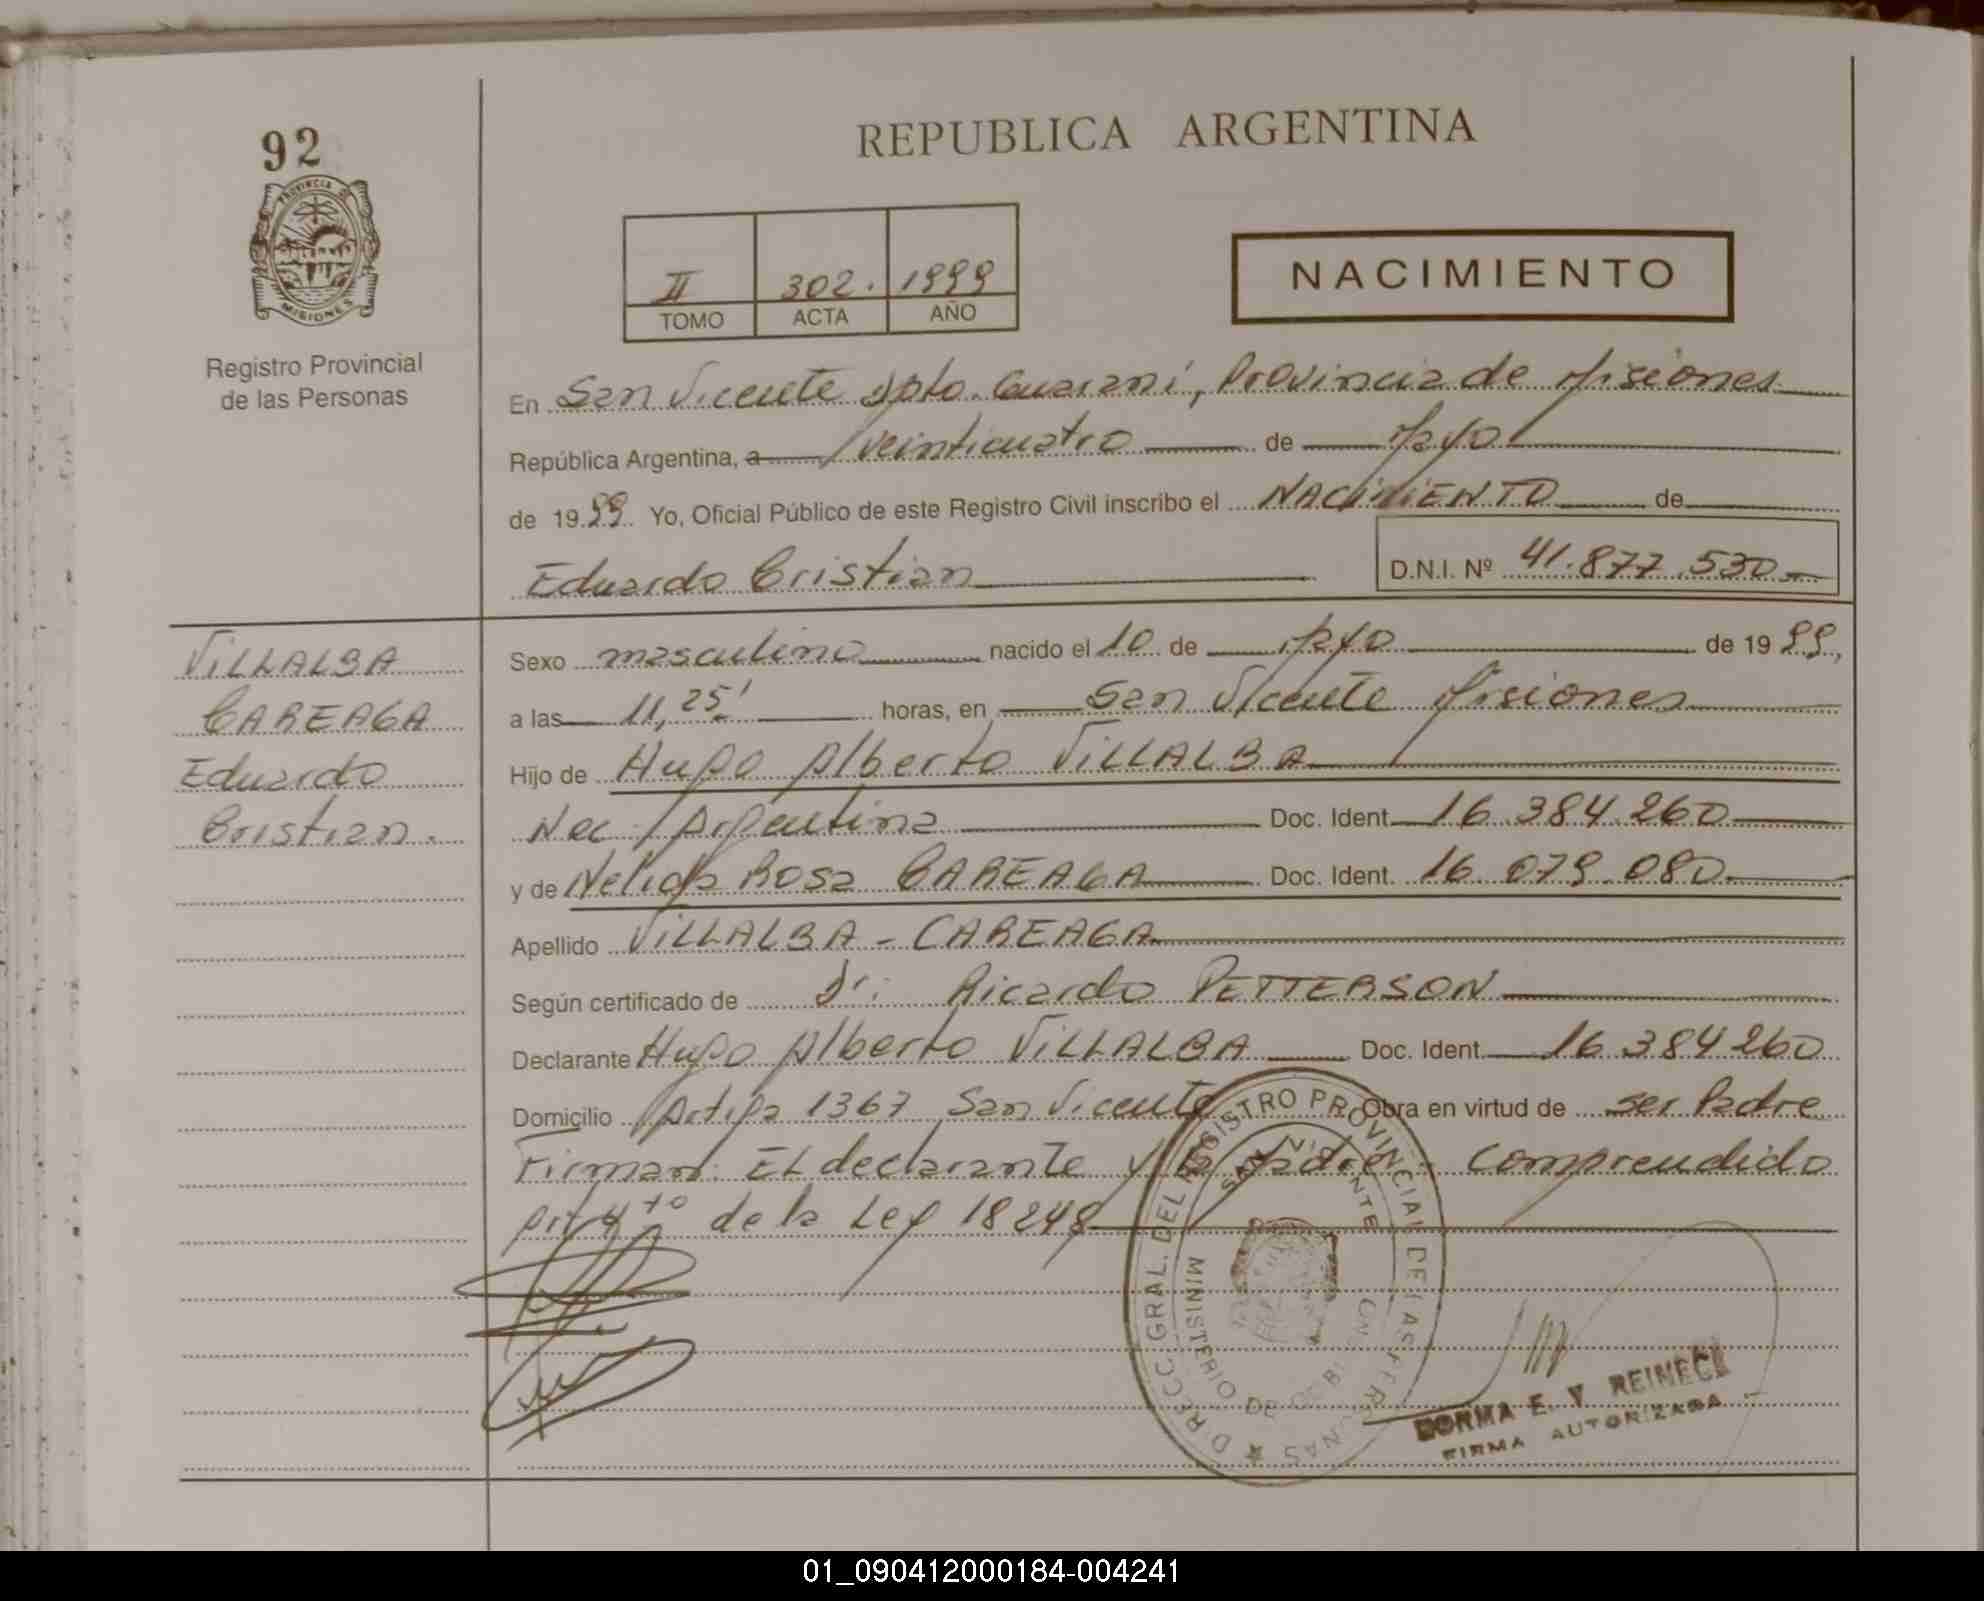 92
PROVINCIA
MISIONES
Registro Provincial
de las Personas
REPUBLICA ARGENTINA
II 302. 1999
TOMO ACTA AÑO
NACIMIENTO
En San Vicente Dpto. Guaraní, Provincia de Misiones
República Argentina, a veinticuatro de Mayo
de 1999 Yo, Oficial Público de este Registro Civil inscribo el NACIMIENTO de
Eduardo Cristian D.N.I. Nº 41.877.530
VILLALBA
CAREAGA
Eduardo
Cristian.
Sexo masculino nacido el 10 de Mayo de 1999,
a las 11,25' horas, en San Vicente Misiones
Hijo de Hugo Alberto VILLALBA
Nac. Argentina Doc. Ident. 16.384.260
y de Nelida Rosa CAREAGA Doc. Ident. 16.079.080
Apellido VILLALBA - CAREAGA
Según certificado de Dr: Ricardo PETTERSON
Declarante Hugo Alberto VILLALBA Doc. Ident. 16.384.260
Domicilio Artiga 1367 San Vicente Obra en virtud de ser Padre
Firman: El declarante y la Madre - Comprendido
Art 4to de la Ley 18248
DIRECC. GRAL. DEL REGISTRO PROVINCIAL DE LAS PERSONAS
SAN VICENTE
MINISTERIO DE GOB
MISIONES
NORMA E. V. REINECK
FIRMA AUTORIZADA
01_090412000184-004241